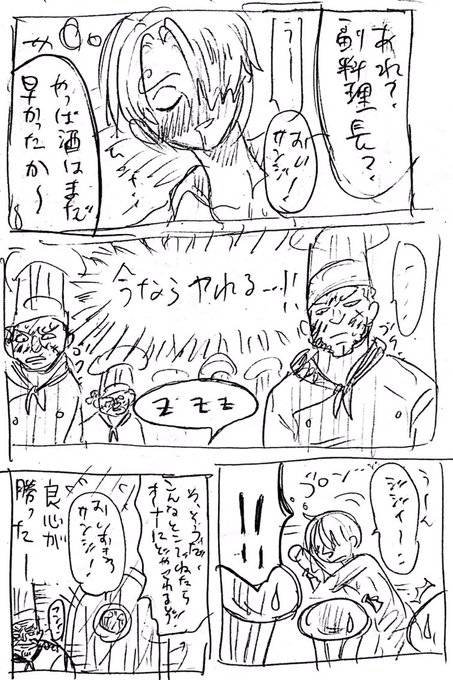 あれ?
副料理長?
うー
おい
サンジ!
やっぱ酒はまだ
早かったか〜
今ならヤれる…!!
ゴクッ
zzz
うーん
ジジィ…
ゴロン
!!
そ、そうだ、
こんなとこでねたら
オーナーにどやされるぞ
おい、おきろ
サンジー!
良心が
勝ったー